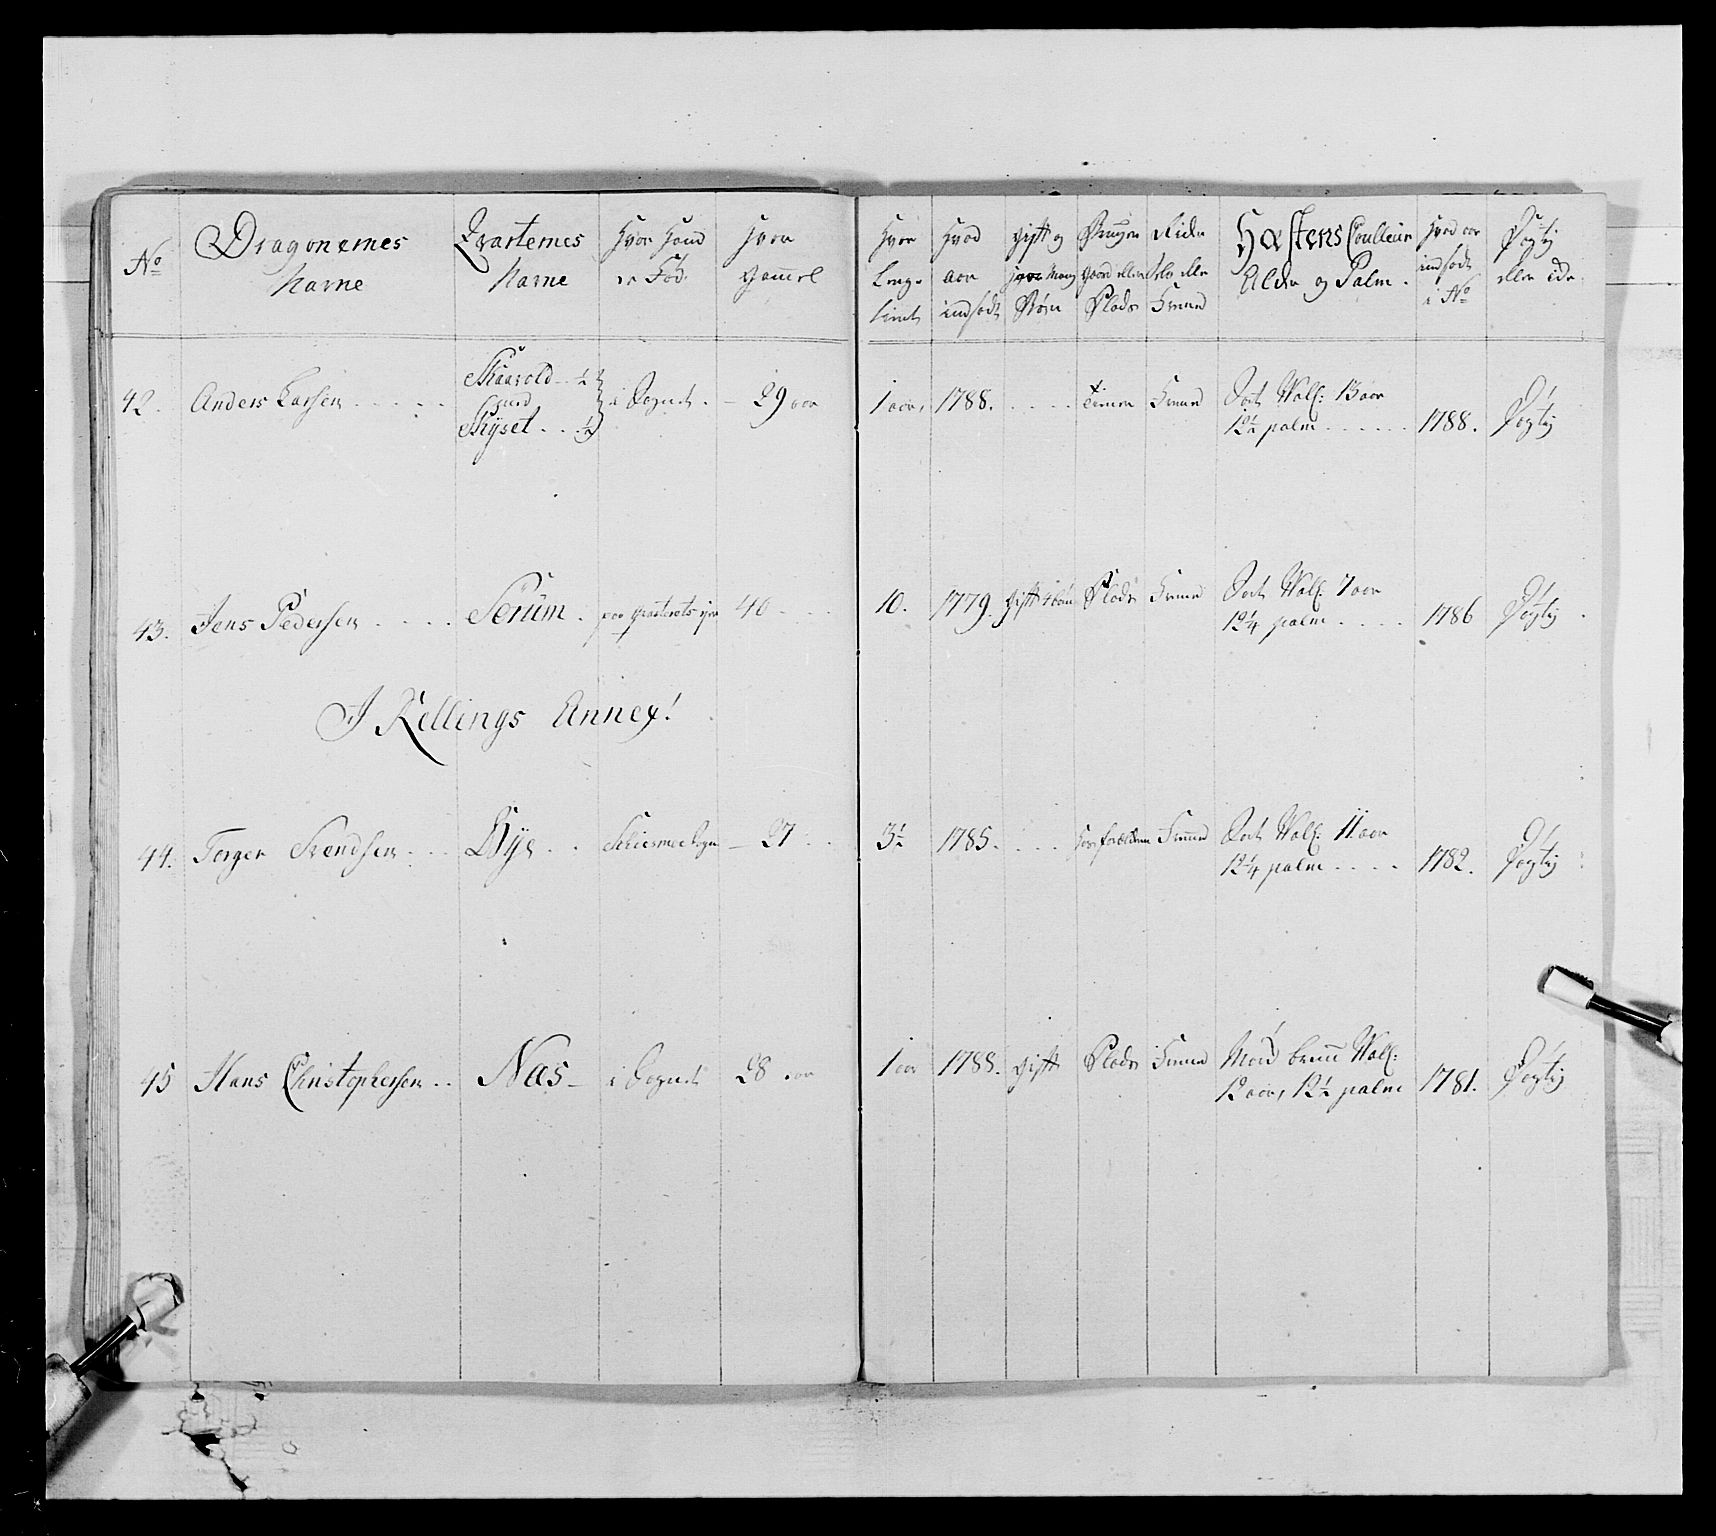 No
Dragonernes
Navne
Qvarternes
Navne
Hvor Hand
er Fød
Hvor
Gammel
Hvor
Længe
tient
Hvad
aar
indsadt
Gift og
hvor Mang
Børn
Bruger
Gaard eller
Plads
Rider
selv eller
Fremd
Hæstens Coulleur
Alder og Palm.
Hvad aar
indsadt
i No
Døgtig
eller ide
42. Anders Larsen
Skaavold .. ½
med
Skyset ... ½
i Sognet. 29 aar
1 aar, 1788. Tiener Fremd
Sort Wall: 13 aar
12½ palm 1788. Døgtig
43. Jens Pedersen Serum. 40
10. 1779. Gift 4 børn Plads Fremd
Sort Wall: 7 aar
12¼ palm 1786 Døgtig
I Kellings Annex!
44. Torger Svendsen Bye 27
3½ 1785. hos forældrene Fremd
Sort Wall: 11 aar
12¼ palm 1782. Døgtig
45 Hans Christophersen Næs i Sognet 28 aar
1 aar 1788. Gift Plads Fremd
Mørd bruun Wall:
12 aar, 12½ palm 1781. Døgtig